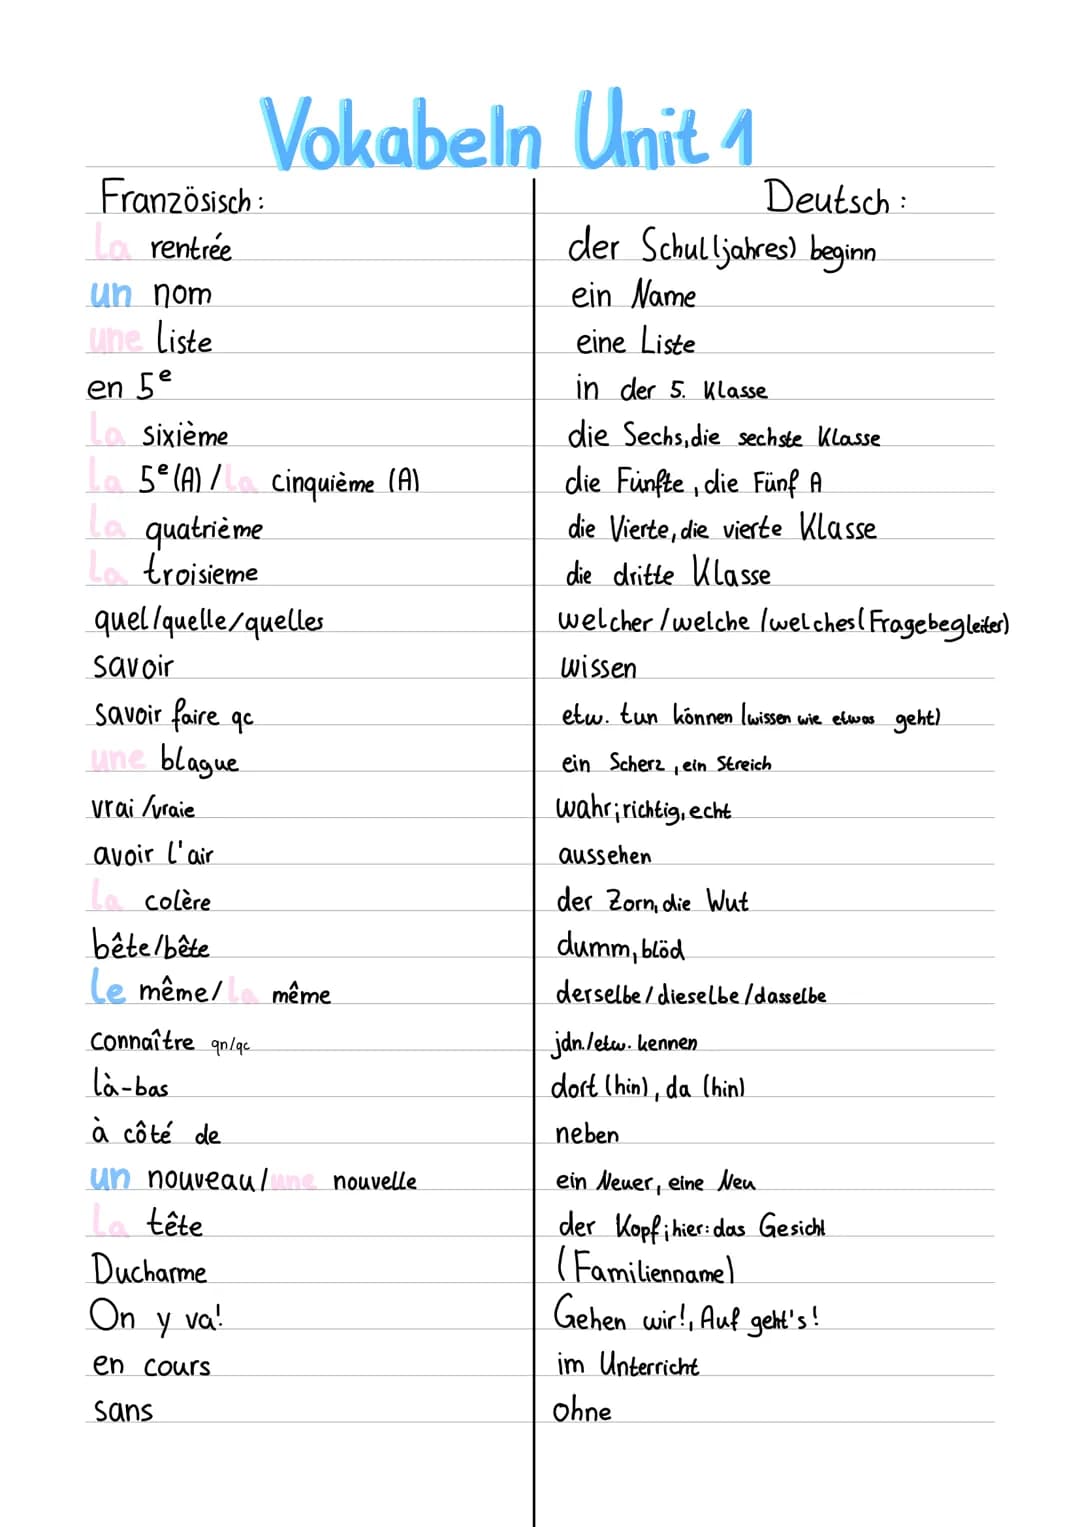 Vokabeln Unit 1
Französisch: Deutsch:
la rentrée der Schul(jahres) beginn
un nom ein Name
une liste eine Liste
en 5e in der 5. Klasse
la sixième die Sechs, die sechste Klasse
la 5e (A) / la cinquième (A) die Fünfte, die Fünf A
la quatrième die Vierte, die vierte Klasse
la troisieme die dritte Klasse
quel/quelle/quelles welcher/welche/welches (Fragebegleiter)
savoir wissen
savoir faire qc etw. tun können (wissen wie etwas geht)
une blague ein Scherz, ein Streich
vrai/vraie wahr; richtig, echt
avoir l'air aussehen
la colère der Zorn, die Wut
bête/bête dumm, blöd
le même/la même derselbe/dieselbe/dasselbe
connaître qn/qc jdn./etw. kennen
là-bas dort (hin), da (hin)
à côté de neben
un nouveau/une nouvelle ein Neuer, eine Neu
la tête der Kopf; hier: das Gesicht
Ducharme (Familienname)
On y va! Gehen wir!, Auf geht's!
en cours im Unterricht
sans ohne